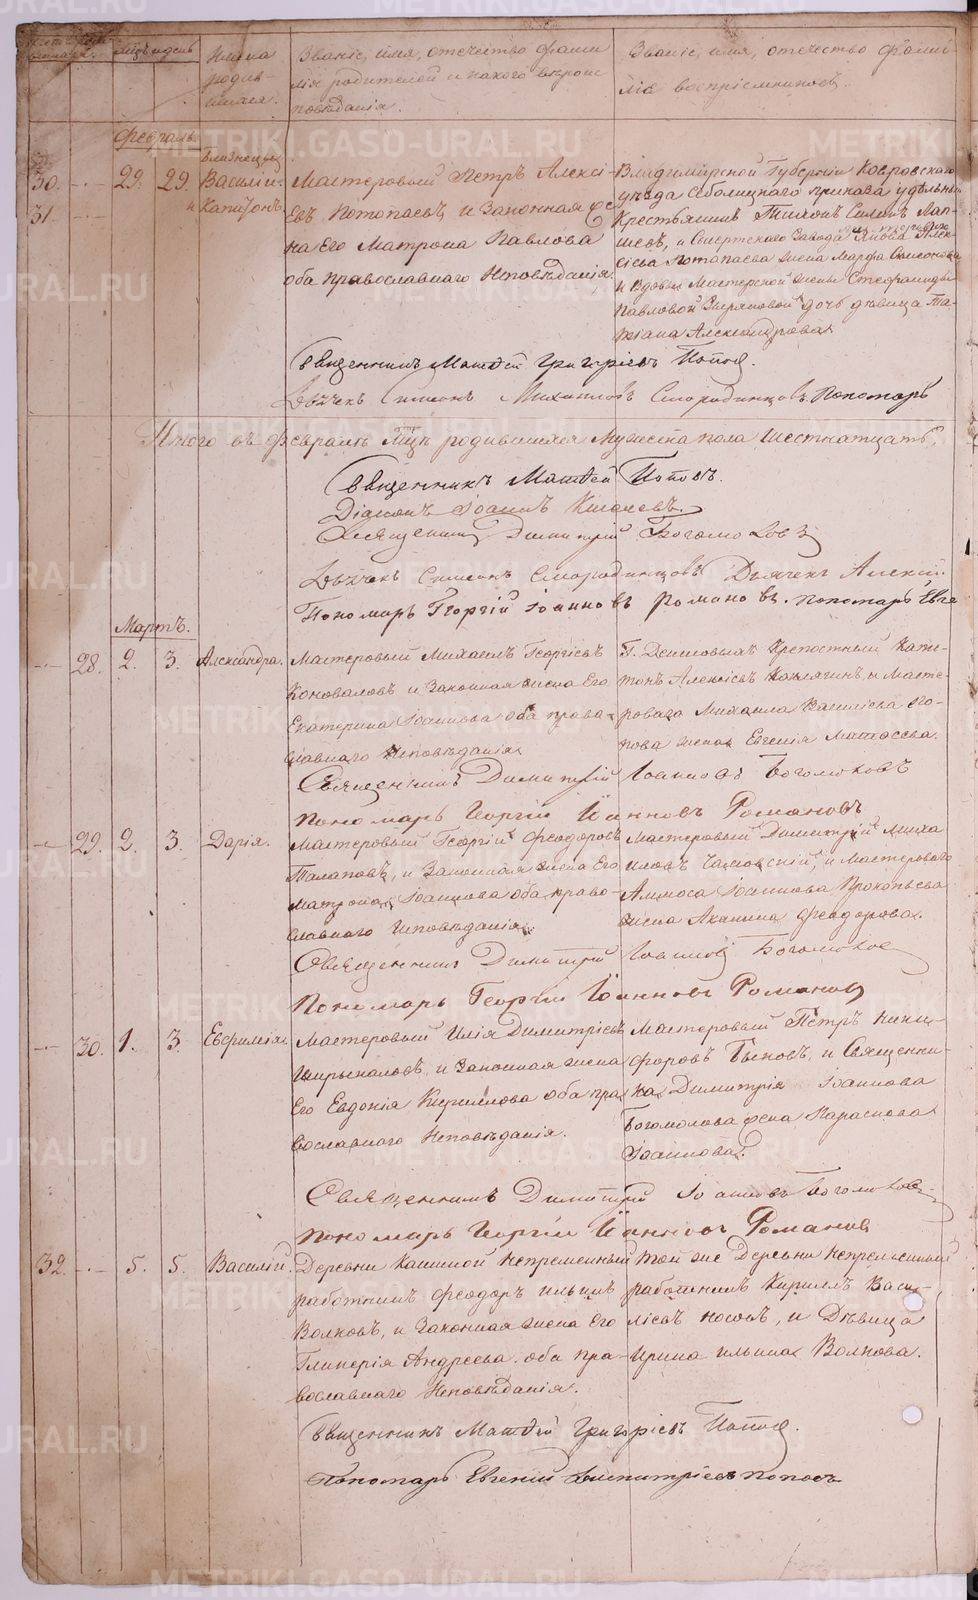 Мѣсяцъ и день
Имена родив-
шихся.
Званіе, имя, отечество фами-
лія родителей и какого вѣроис-
повѣданія.
Званіе, имя, отечество фами-
лія воспріемниковъ.
Февраль
30. 29. 29. Близнецы
Василій
31. и Капитонъ
Мастеровый Петръ Алексі-
евъ Потопаевъ и Законная же-
на Его Матрона Павлова
оба православнаго Исповѣданія
Владимірской Губерніи Ковровскаго
уѣзда приказа удѣльный
Крестьянинъ Тихонъ Лап-
шевъ, и Завода Якова Алек-
сіева Потапаева жена Марфа
и Вдовы Мастерской жены Стефаниды
Павловой дочь дѣвица Та-
тіана Александрова
Священникъ Матѳей Григорьевъ Поповъ.
Дьячекъ Симеонъ Михаиловъ Смородинцовъ. Пономарь
Итого въ февралѣ Мцѣ родившихся Мужеска пола Шестнатцать.
Священникъ Матѳей Поповъ.
Діаконъ Іоаннъ
Священникъ Димитрій Богомоловъ
Дьячекъ Симеонъ Смородинцовъ Дьячекъ Алексій
Пономарь Георгій Іоанновъ Романовъ. пономарь Евге
Мартъ.
28. 2. 3. Александра.
Мастеровый Михаилъ Георгіевъ
Коноваловъ и Законная жена Его
Екатерина Іоаннова оба право-
славнаго Исповѣданія
Г. Крепостный Капи-
тонъ Алексіевъ и Масте-
роваго Михаила Василіева
жена Евгенія Матѳеева.
Священникъ Димитрій Іоанновъ Богомоловъ
Пономарь Георгій Іанновъ Романовъ
29. 2. 3. Дарія.
Мастеровый Георгій Феодоровъ
Талаповъ, и Законная жена Его
Матрона Іоаннова оба право-
славнаго Исповѣданія.
Мастеровый Димитрій Миха
иловъ и Мастероваго
Амоса Іоаннова Прокопьева
жена Акилина Феодорова.
Священникъ Димитрій Іоанновъ Богомоловъ
Пономарь Георгій Іоанновъ Романовъ
30. 1. 3. Евфимія.
Мастеровый Илія Димитріевъ
Ширыкаловъ, и Законная жена
Его Евдокія Кириллова оба пра-
вославнаго Исповѣданія.
Мастеровый Петръ Ники-
форовъ Быковъ, и Священни-
ка Димитрія Іоаннова
Богомолова жена Параскова
Іоаннова.
Священникъ Димитрій Іоанновъ Богомоловъ
пономарь Георгій Іанновъ Романовъ
32. 5. 5. Василій.
Деревни Кашиной Непременный
работникъ Феодоръ Ильинъ
Волковъ, и Законная жена Его
Гликерія Андреева. оба пра-
вославнаго Исповѣданія.
Той же Деревни Непременный
работникъ Кириллъ Васи-
ліевъ Носовъ, и Дѣвица
Ирина Ильина Волкова.
Священникъ Матѳей Григорьевъ Поповъ.
Пономарь Евгеній Димитріевъ Поповъ
METRIKI.GASO-URAL.RU